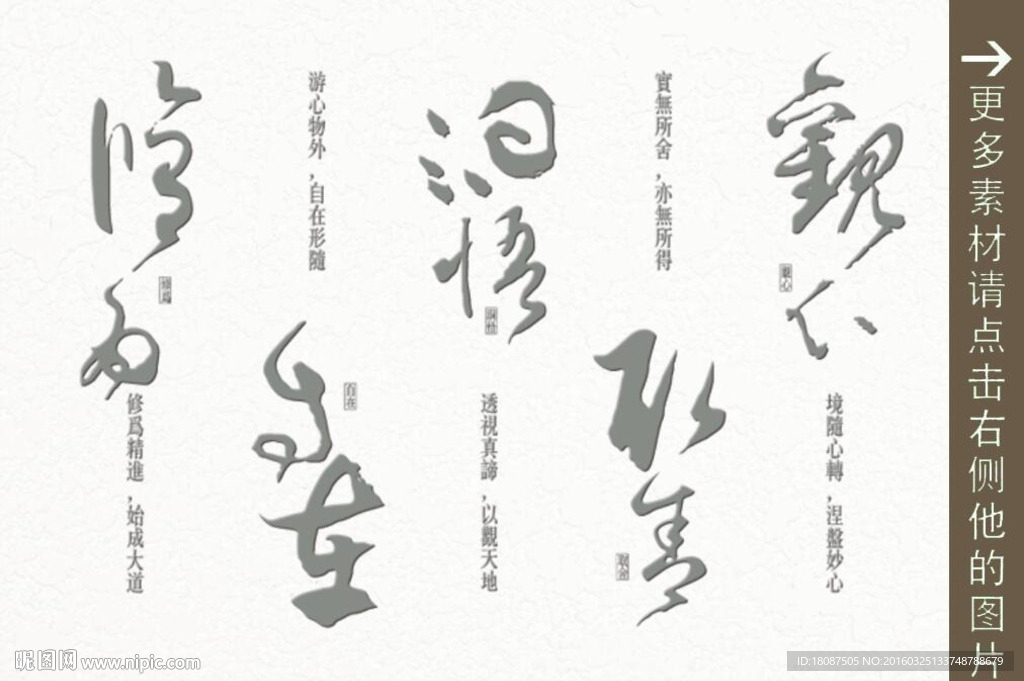 觀心
觀心
境隨心轉，涅盤妙心
實無所舍，亦無所得
取舍
取舍
洞悟
洞悟
透視真諦，以觀天地
游心物外，自在形隨
自在
自在
修為
修爲
修爲精進，始成大道
→更多素材请点击右侧他的图片
昵图网 www.nipic.com
ID:18087505 NO:20160325133748788679